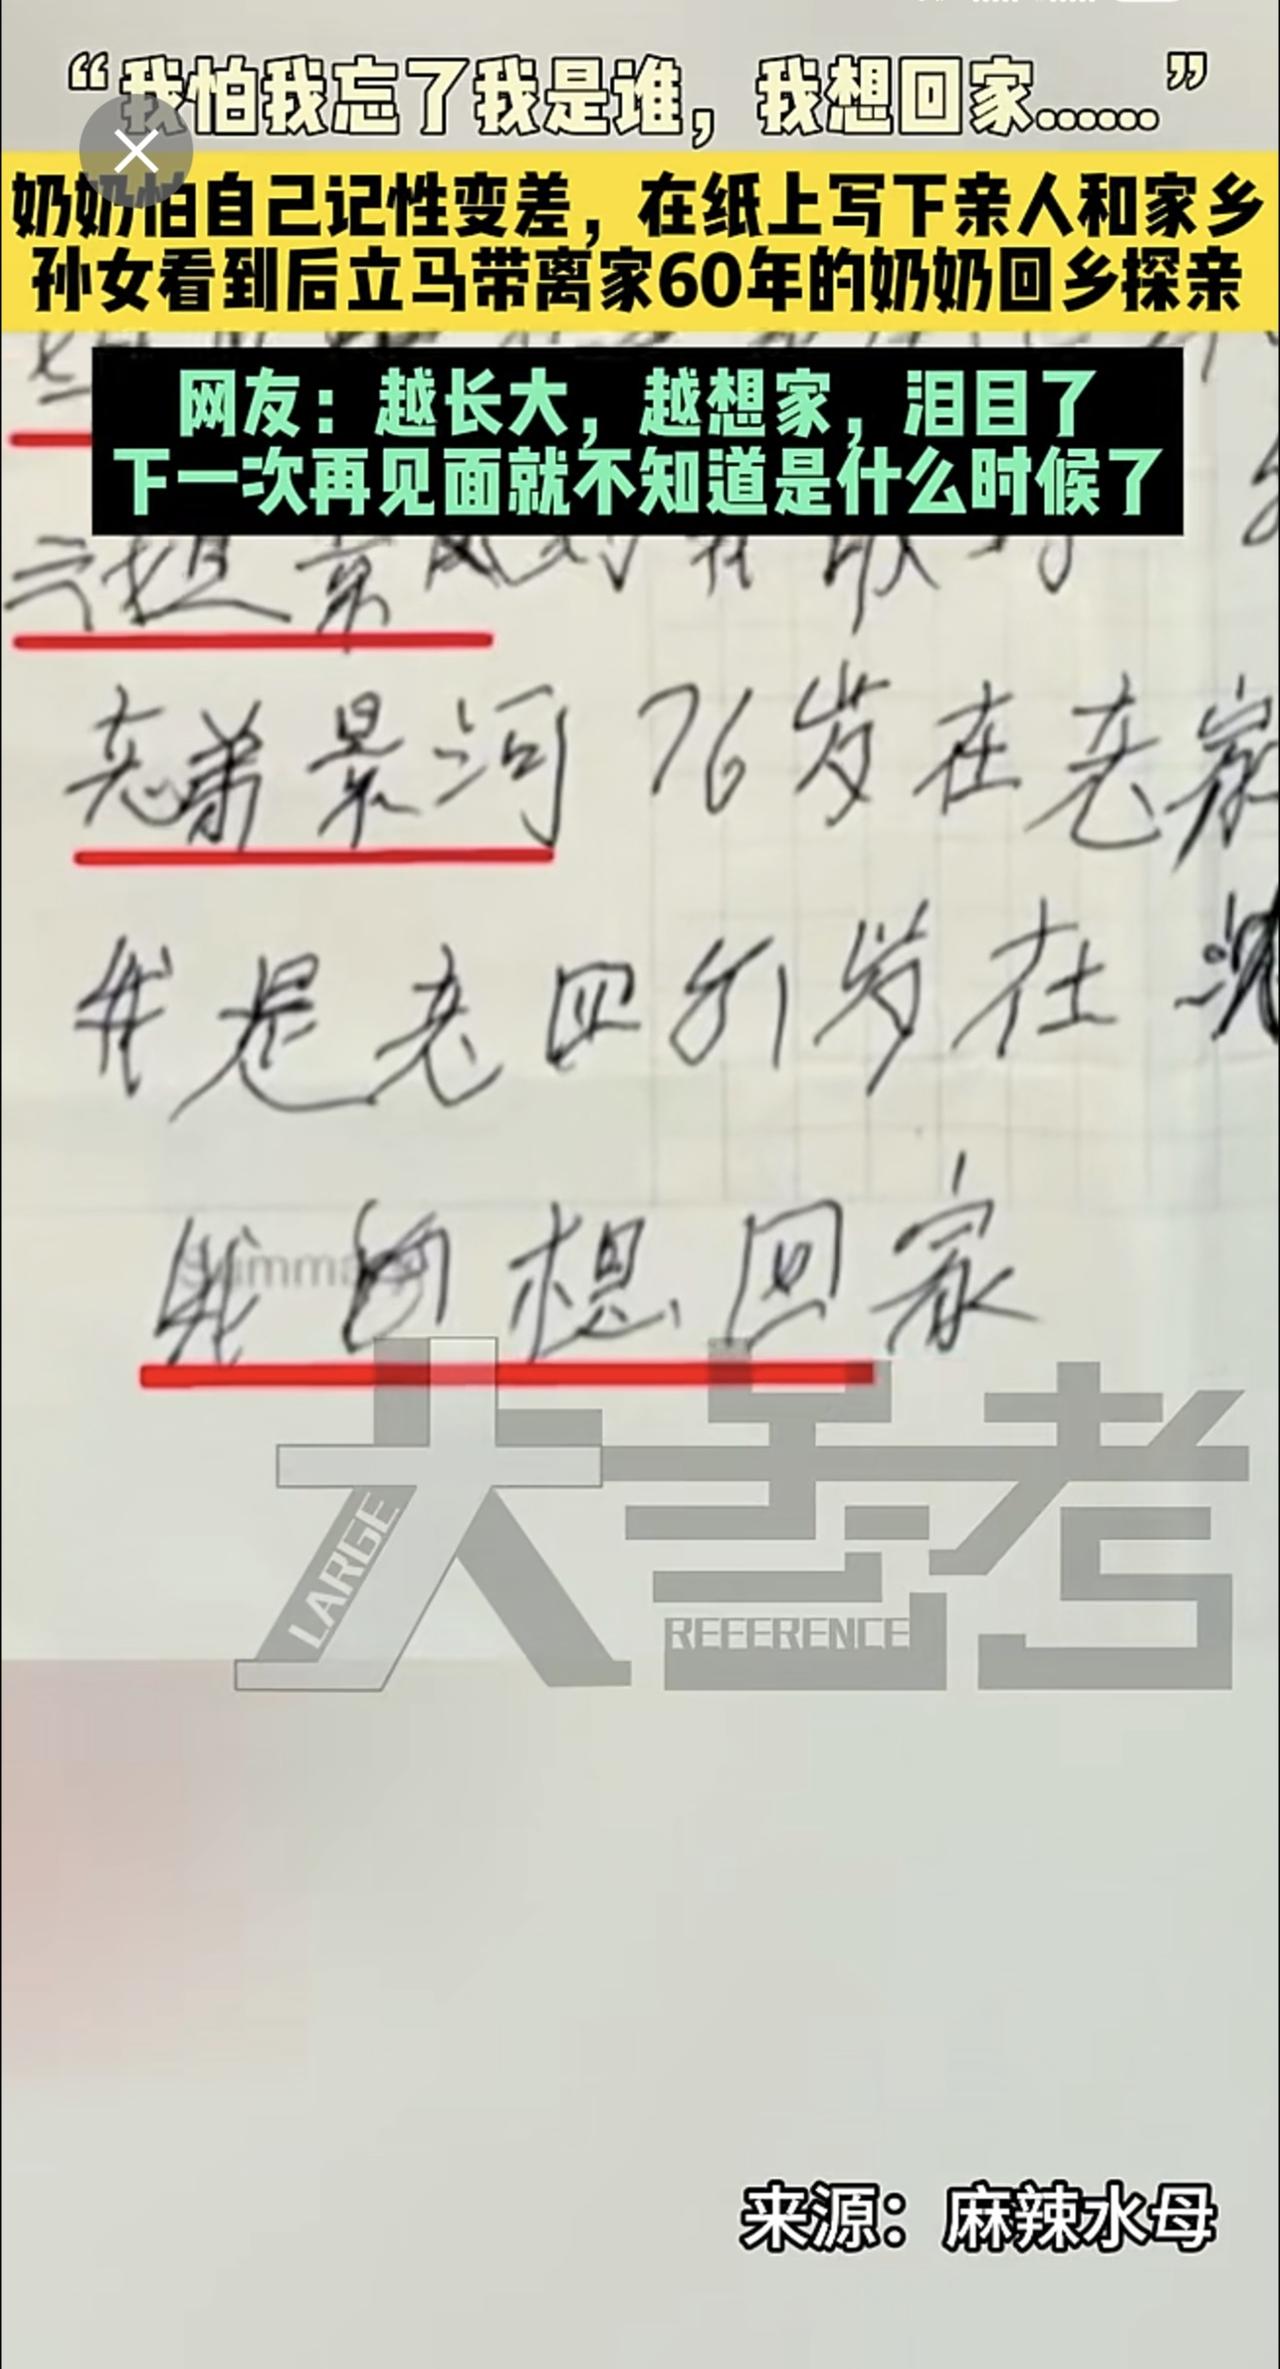 “我怕我忘了我是谁，我想回家......”
奶奶怕自己记性变差，在纸上写下亲人和家乡
孙女看到后立马带离家60年的奶奶回乡探亲
网友：越长大，越想家，泪目了
下一次再见面就不知道是什么时候了
老弟景河 76岁在老家
我是老四 81岁在沈
我想回家
大参考
LARGE
REFERENCE
来源：麻辣水母